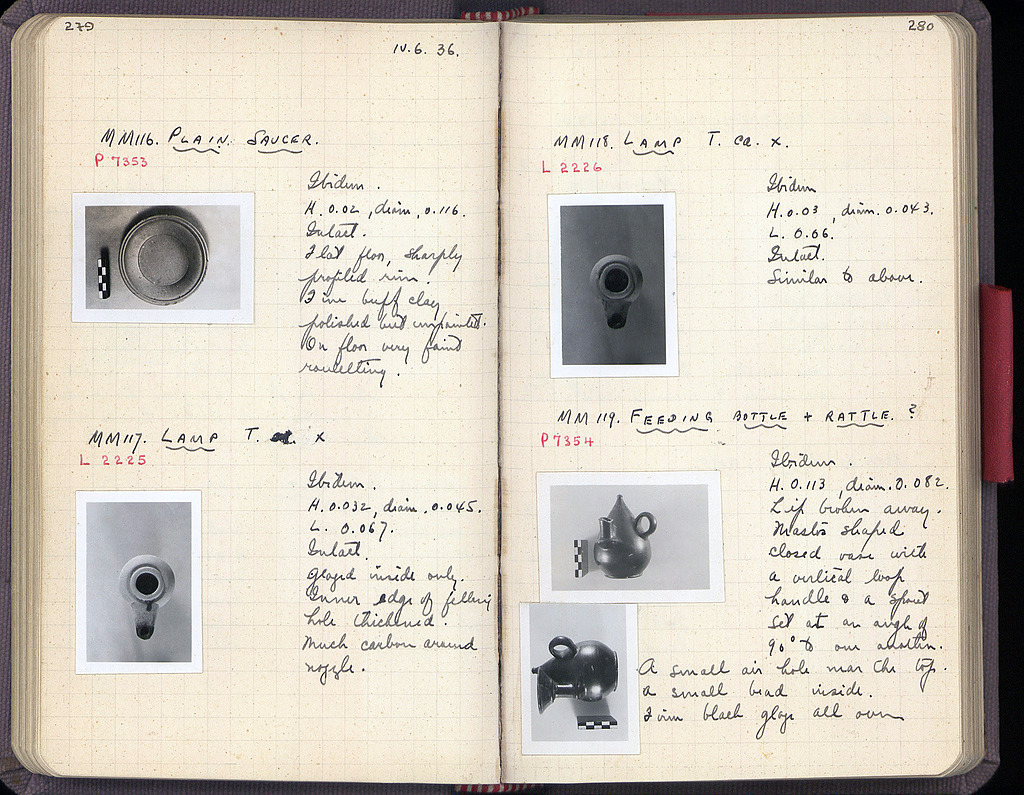 279
IV.6.36.
MM116. PLAIN SAUCER.
P 7353
Ibidem.
H. 0.02, diam, 0.116.
Intact.
Flat floor, sharply
profiled rim.
Fine buff clay
polished but unpainted.
On floor very faint
rouletting.
MM117. LAMP T. ca. x
L 2225
Ibidem.
H. 0.032, diam. 0.045.
L. 0.067.
Intact.
Glazed inside only.
Inner edge of filling
hole thickened.
Much carbon around
nozzle.
280
MM118. LAMP T. ca. x.
L 2226
Ibidem
H. 0.03, diam. 0.043.
L. 0.06.
Intact.
Similar to above.
MM119. FEEDING BOTTLE + RATTLE. ?
P 7354
Ibidem.
H. 0.113, diam. 0.082.
Lip broken away.
Mastos shaped
closed vase with
a vertical loop
handle & a spout
set at an angle of
90° to one another.
A small air hole near the top.
a small bead inside.
Firm black glaze all over